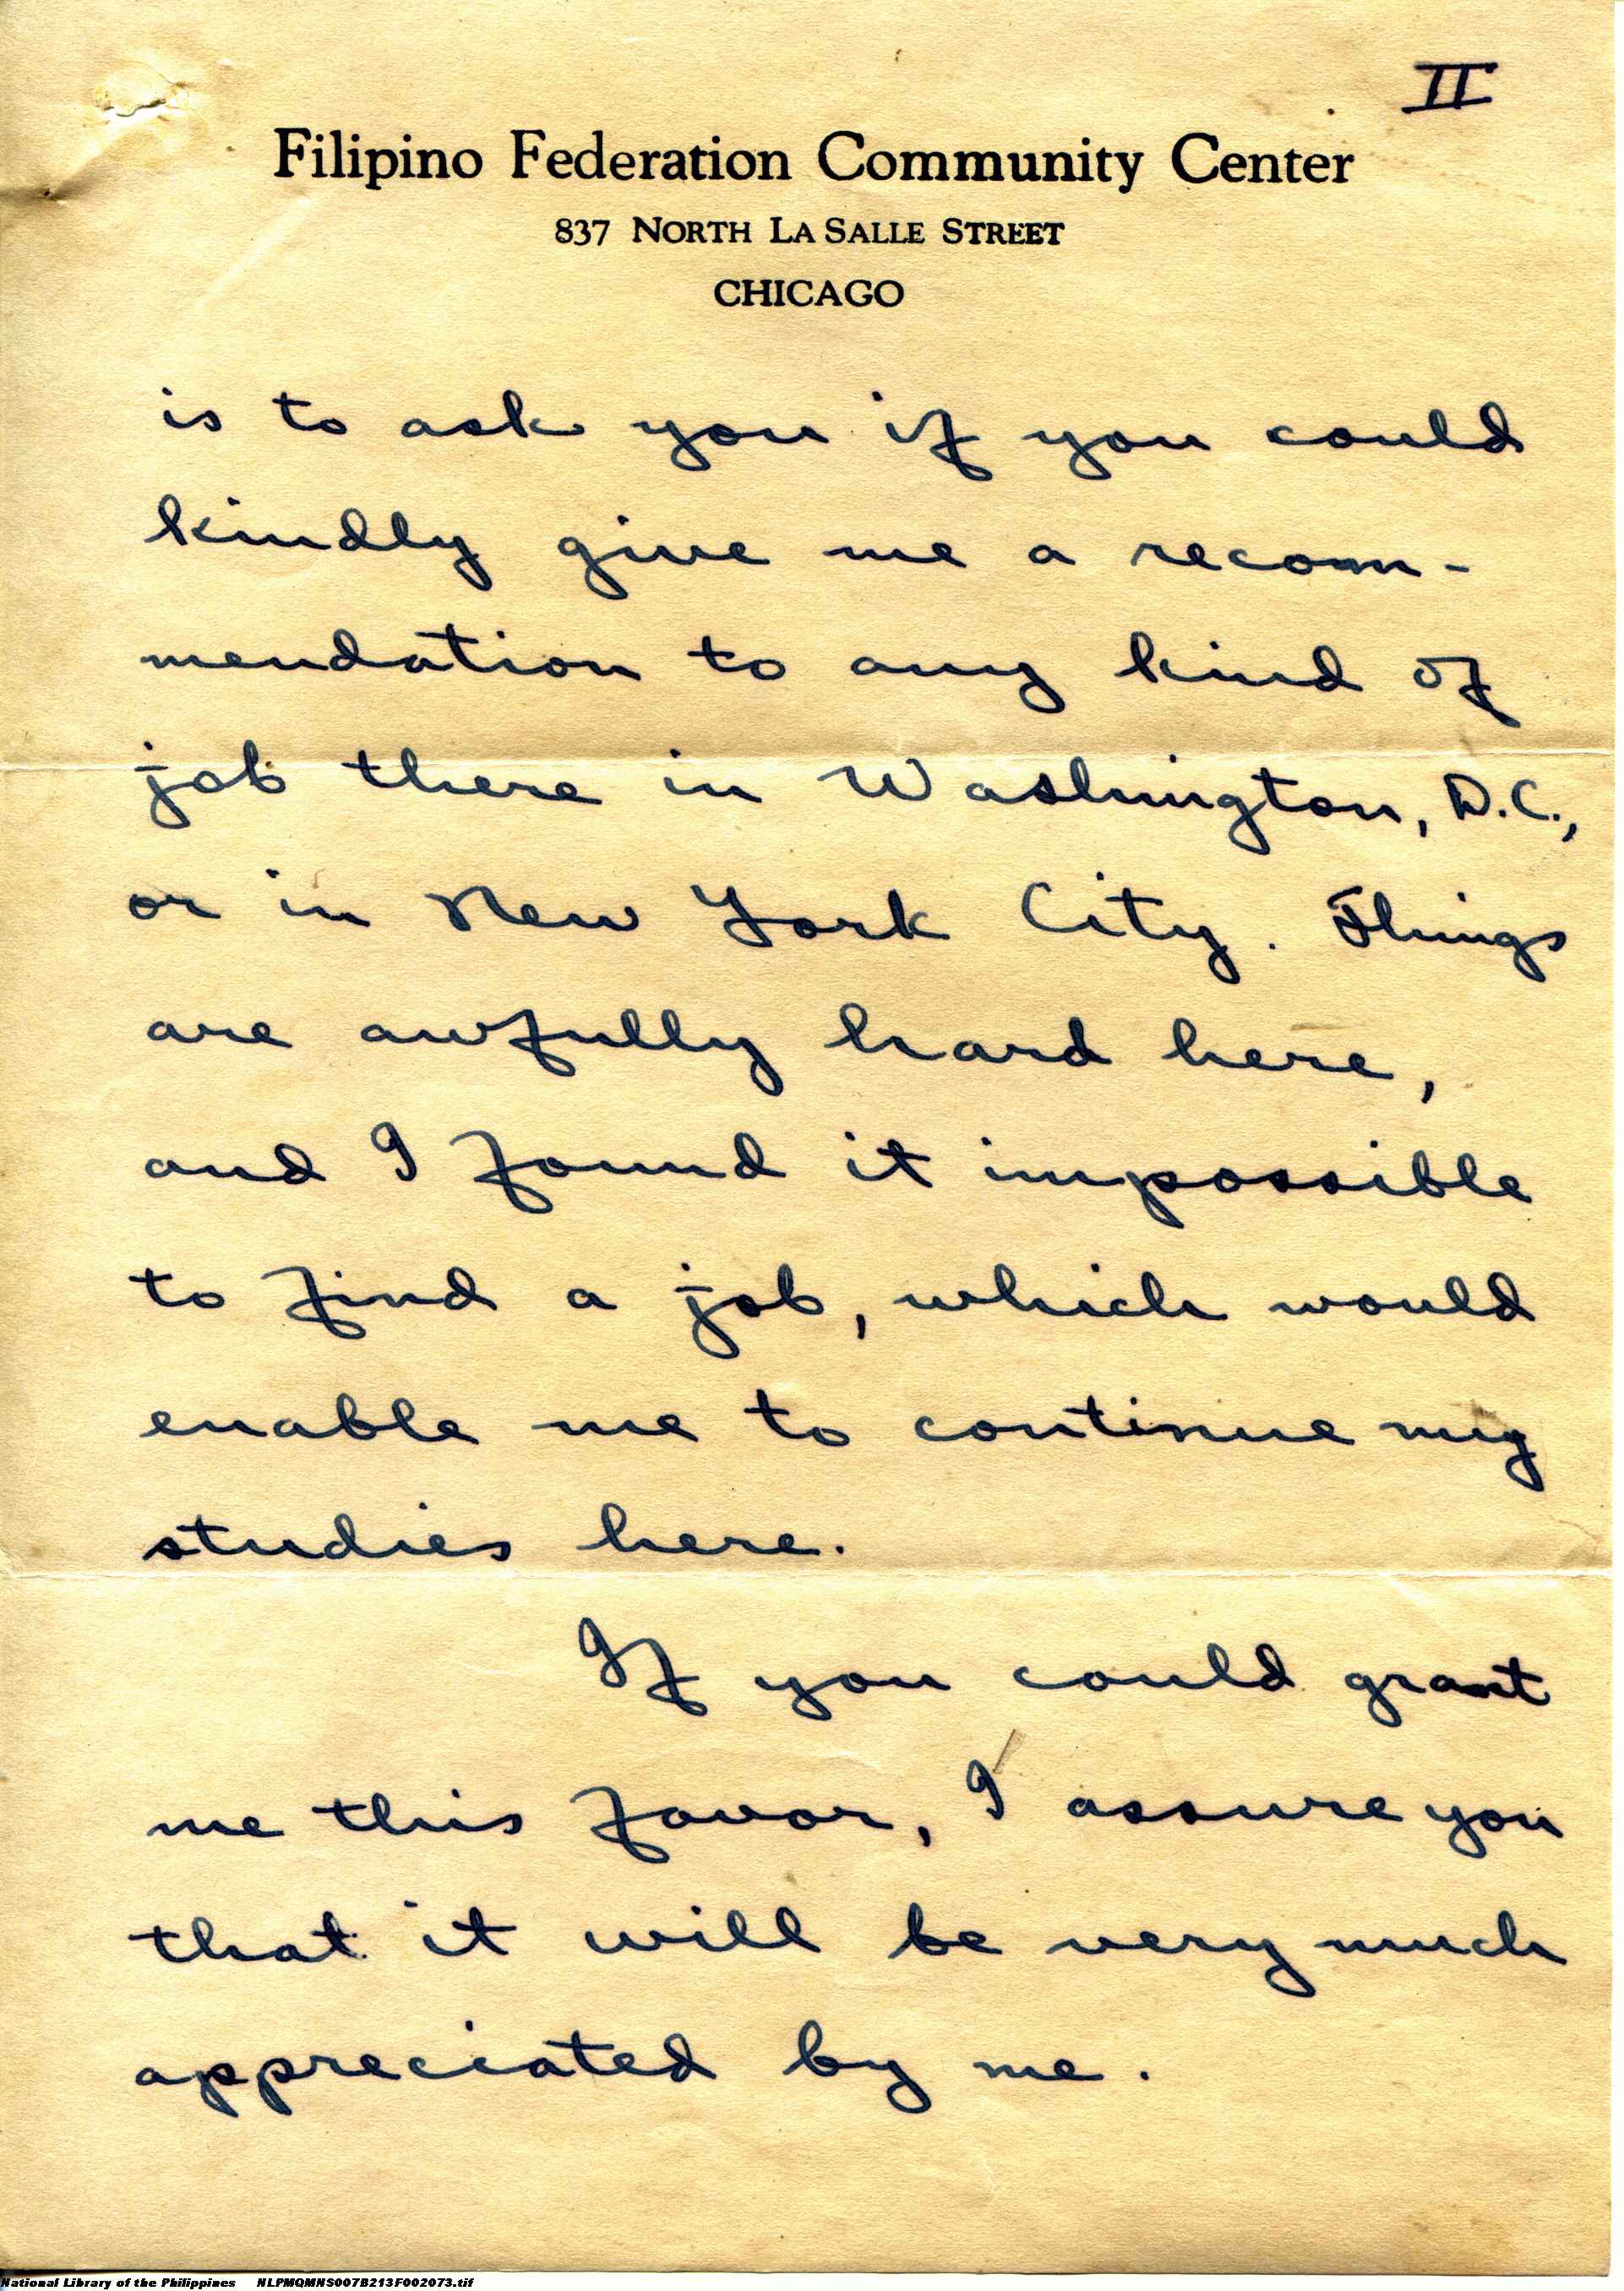 II
Filipino Federation Community Center
837 NORTH LA SALLE STREET
CHICAGO
is to ask you if you could
kindly give me a recom-
mendation to any kind of
job there in Washington, D.C.,
or in New York City. Things
are awfully hard here,
and I found it impossible
to find a job, which would
enable me to continue my
studies here.
If you could grant
me this favor, I assure you
that it will be very much
appreciated by me.
National Library of the Philippines NLPMQMNS007B213F002073.tif